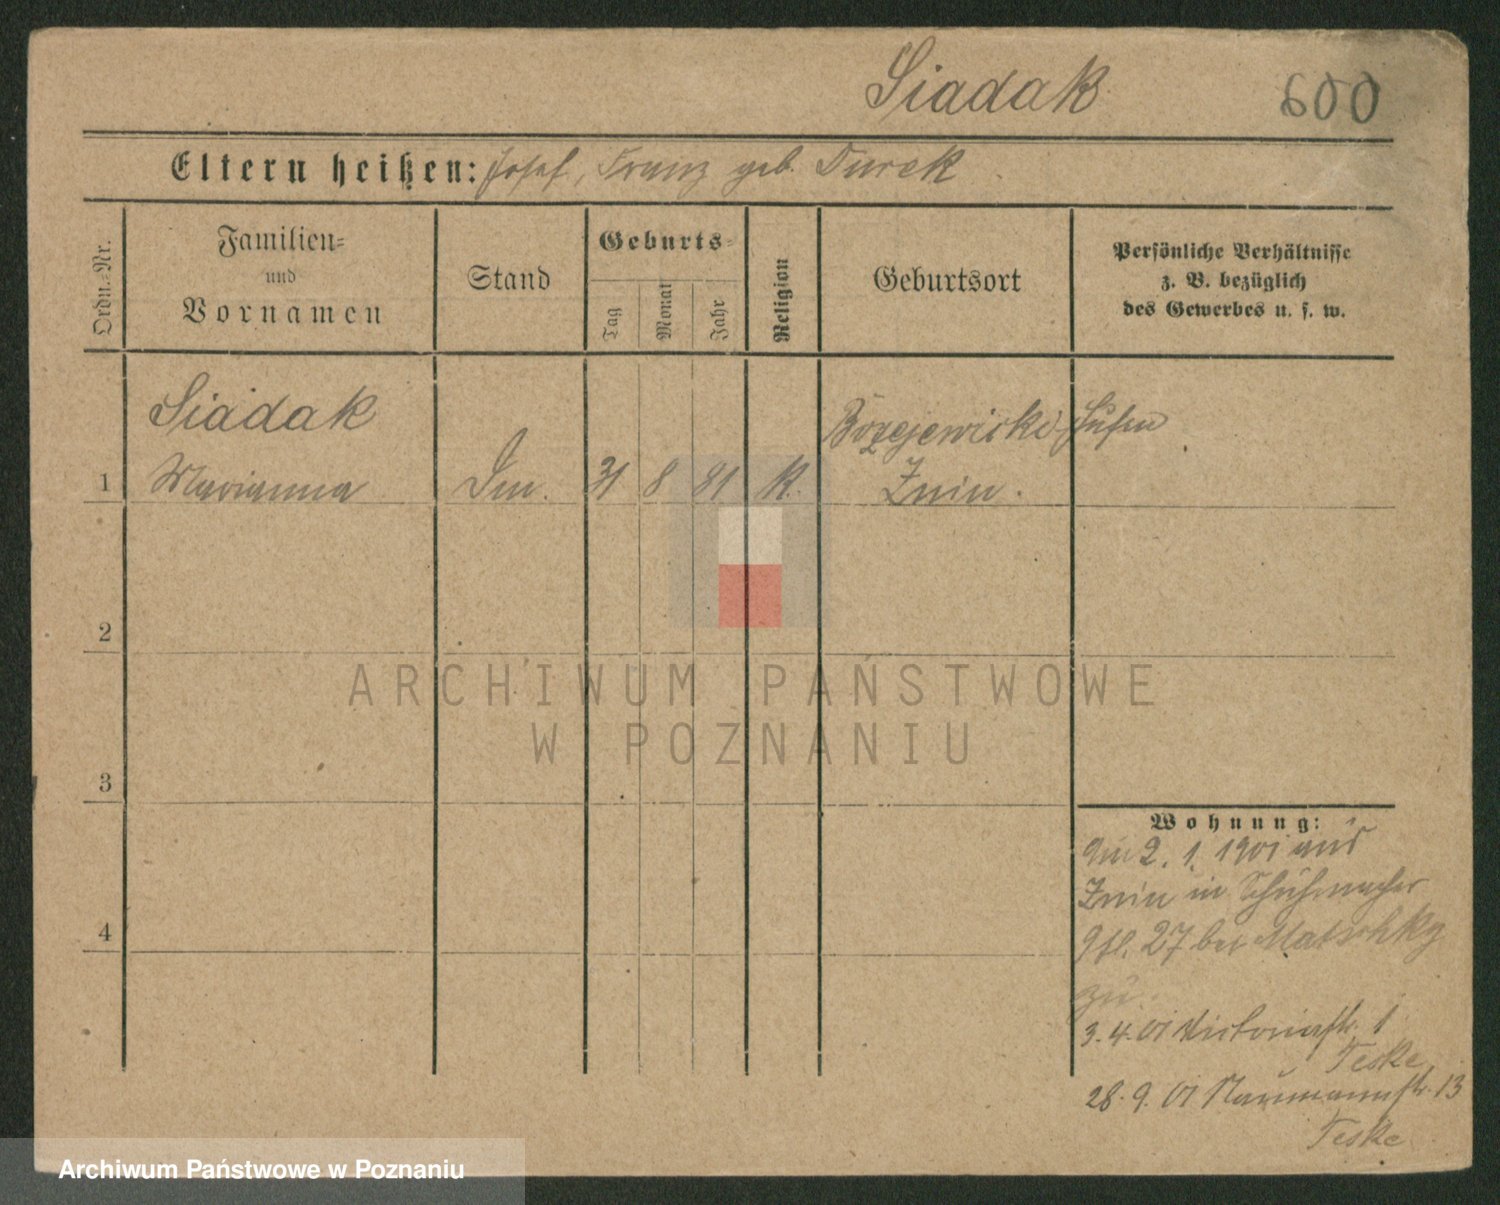 Siadak 600
Eltern heißen: Josef, Franz geb. Turek
Ordn.-Nr.
Familien-
und
Vornamen
Stand
Geburts-
Tag
Monat
Jahr
Religion
Geburtsort
Persönliche Verhältnisse
z. B. bezüglich
des Gewerbes u. s. w.
Siadak
1 Marianna 31 8 81 K. Znin.
2
3
4
Wohnung:
2. 1. 1901 aus
Znin in Schuhmacher
27 bei Matschky
zu.
3. 4. 01 Victoriastr. 1
Teske
28. 9. 01 Naumannstr. 13
Teske
ARCHIWUM PAŃSTWOWE
W POZNANIU
Archiwum Państwowe w Poznaniu